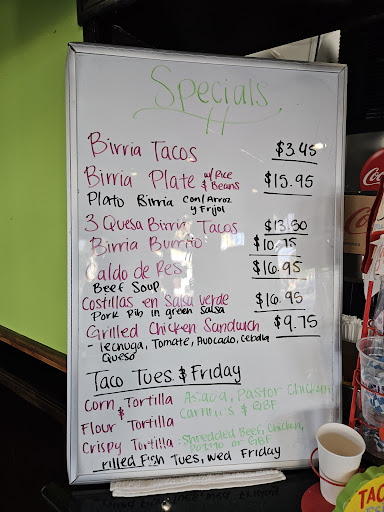 Specials
Birria Tacos $3.45
Birria Plate w/Rice & Beans $15.95
Plato Birria con/Arroz y Frijol
3 Quesa Birria Tacos $13.50
Birria Burrito $10.75
Caldo de Res $16.95
Beef Soup
Costillas en Salsa verde $16.95
Pork Rib in green salsa
Grilled Chicken Sandwich $9.75
lechuga, Tomate, Avocado, cebolla
Queso
Taco Tues & Friday
Corn Tortilla Asada, Pastor Chicken
& Carnitas & GBF
Flour Tortilla
Crispy Tortilla: Shredded Beef, Chicken,
Potato or GBF
Fish Tues, Wed Friday
TAC